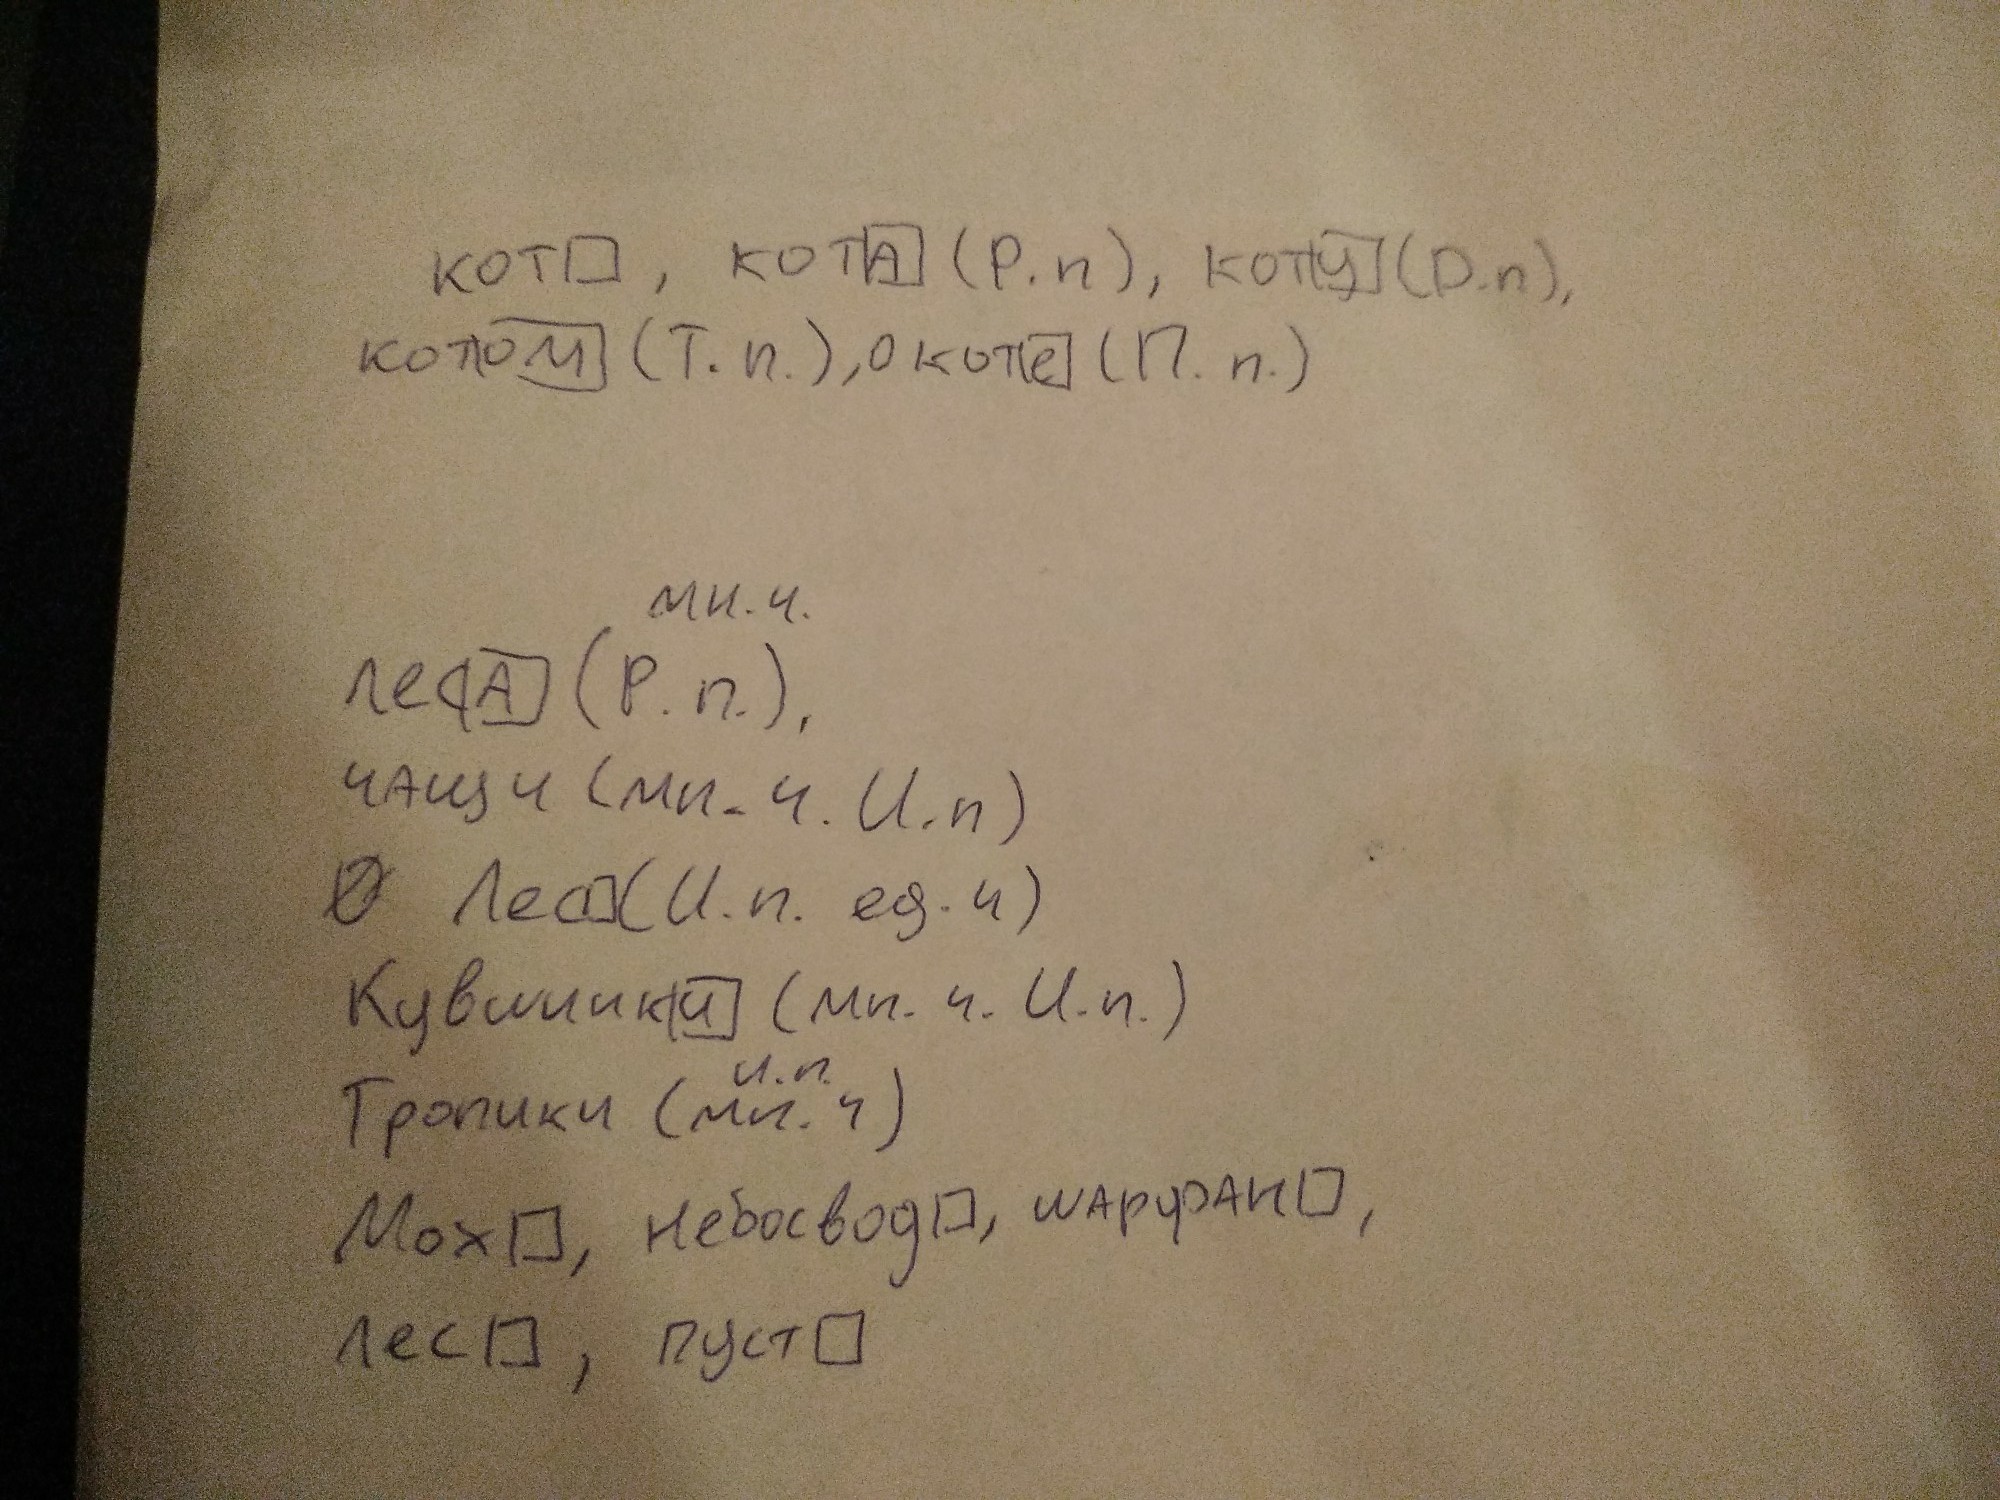 кот□, кот[а] (Р.п), кот[у] (D.п),
кот[ом] (Т.п.), о кот[е] (П.п.)
мн.ч.
Лес[а] (Р.п.),
чащи (мн.ч. И.п)
О Лес□ (И.п. ед.ч)
Кувшинк[и] (мн.ч. И.п.)
и.п.
Тропики (мн.ч)
Мох□, небосвод□, шарфан□,
Лес□, пуст□